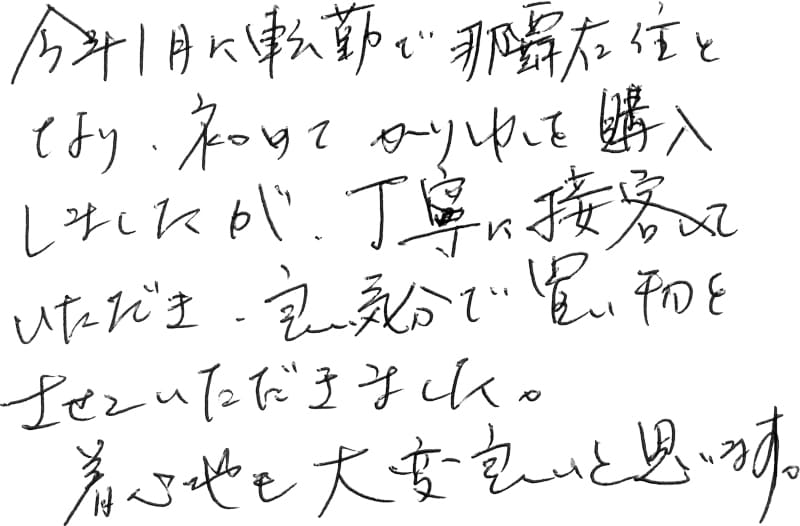 今年1月に転勤で那覇在住と
なり、初めてかりゆしを購入
しましたが、丁寧に接客して
いただき、良い気分で買い物を
させていただきました。
着心地も大変良いと思います。